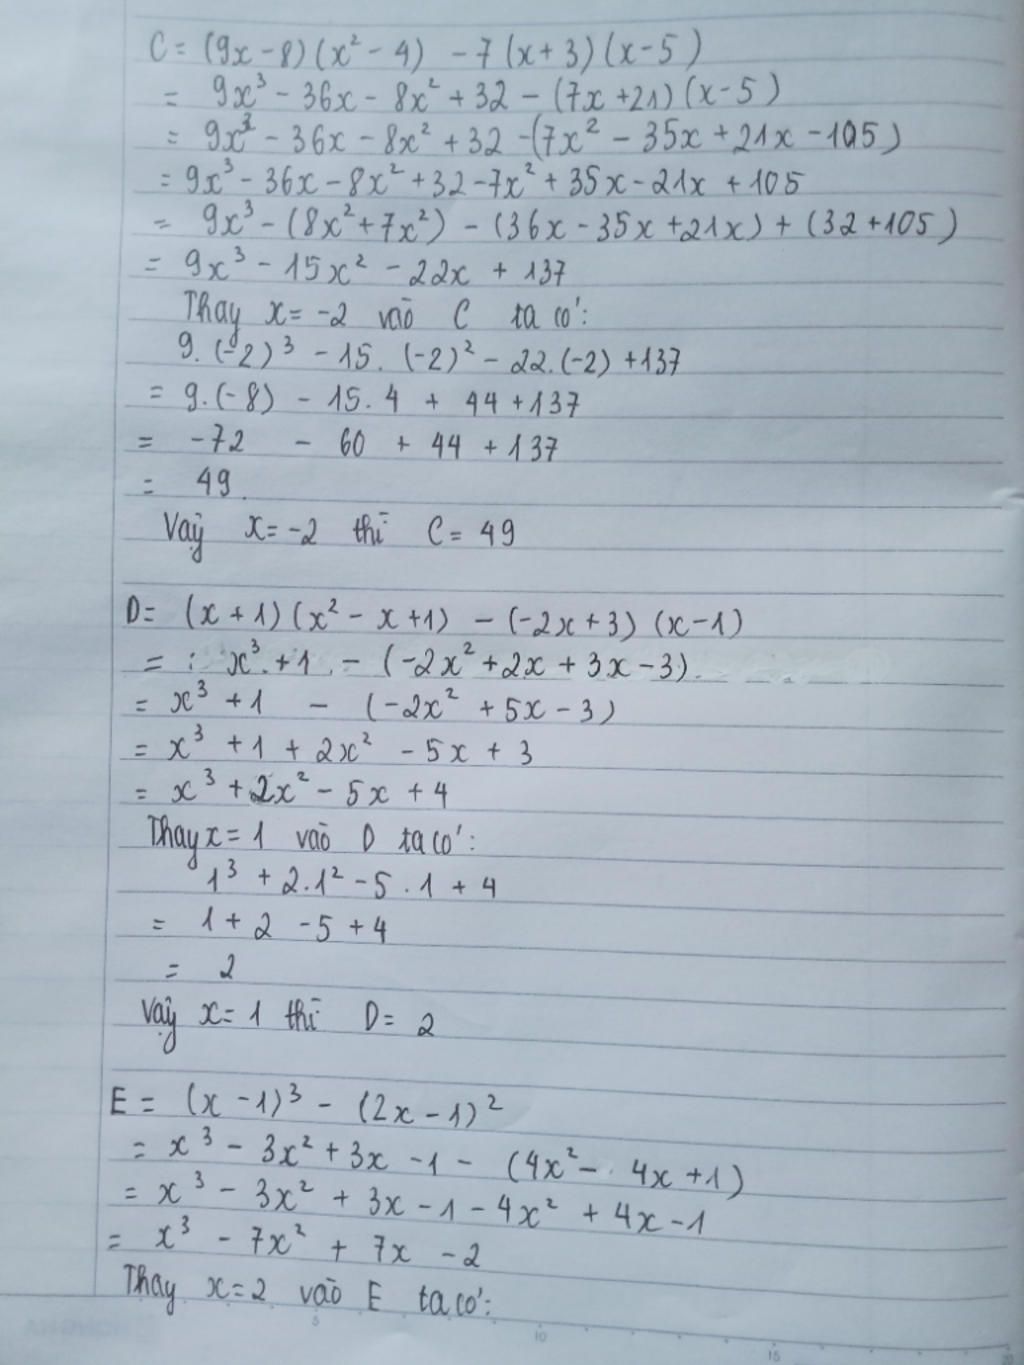 C = (9x - 8)(x² - 4) - 7(x + 3)(x - 5)
= 9x³ - 36x - 8x² + 32 - (7x + 21)(x - 5)
= 9x³ - 36x - 8x² + 32 - (7x² - 35x + 21x - 105)
= 9x³ - 36x - 8x² + 32 - 7x² + 35x - 21x + 105
= 9x³ - (8x² + 7x²) - (36x - 35x + 21x) + (32 + 105)
= 9x³ - 15x² - 22x + 137
Thay x = -2 vào C ta có:
9.(-2)³ - 15.(-2)² - 22.(-2) + 137
= 9.(-8) - 15.4 + 44 + 137
= -72 - 60 + 44 + 137
= 49
Vậy x = -2 thì C = 49
D = (x + 1)(x² - x + 1) - (-2x + 3)(x - 1)
= x³ + 1 - (-2x² + 2x + 3x - 3)
= x³ + 1 - (-2x² + 5x - 3)
= x³ + 1 + 2x² - 5x + 3
= x³ + 2x² - 5x + 4
Thay x = 1 vào D ta có:
1³ + 2.1² - 5.1 + 4
= 1 + 2 - 5 + 4
= 2
Vậy x = 1 thì D = 2
E = (x - 1)³ - (2x - 1)²
= x³ - 3x² + 3x - 1 - (4x² - 4x + 1)
= x³ - 3x² + 3x - 1 - 4x² + 4x - 1
= x³ - 7x² + 7x - 2
Thay x = 2 vào E ta có:
5 10 15 20